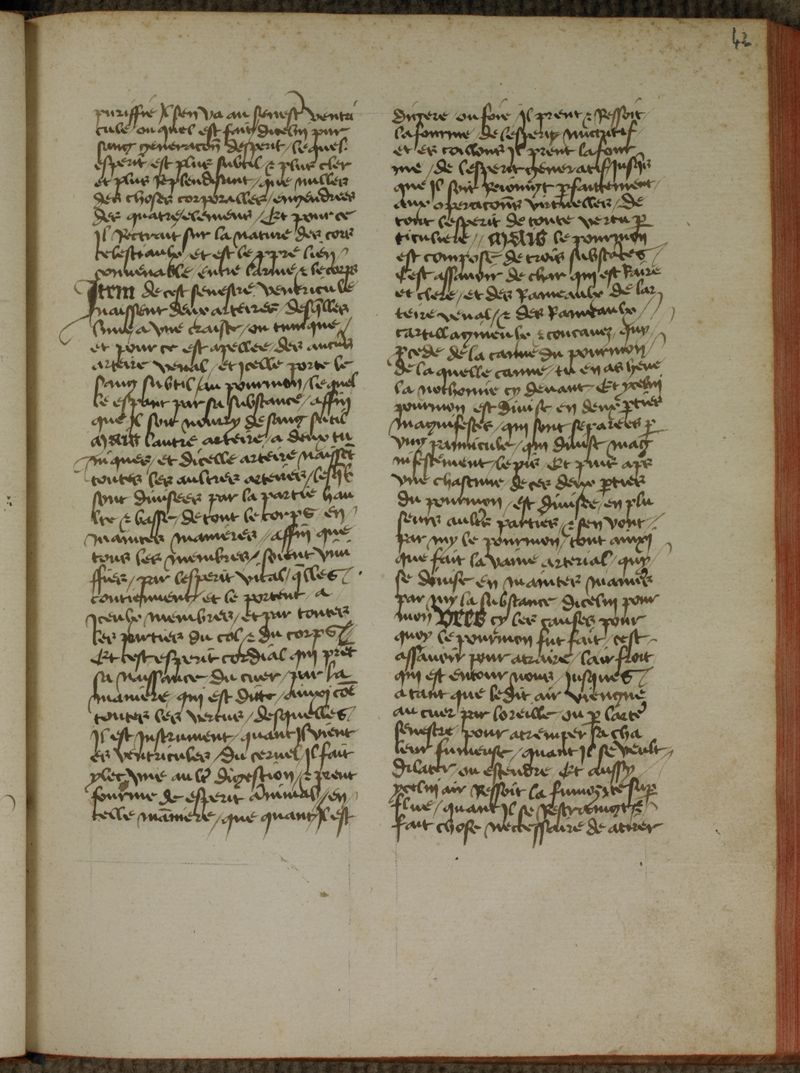 42
puriffie Il sen va au senest ventri
cule ou quel est fait dicelui pur
sang generacon desperit / lequel
esperit est plus subtil & plus cler
et plus resplendisant / que nulles
des choses corporalles / engendrees
des quatre elemens / Et pour ce
Il retrait sur la nature des cors
celestiaulx / et est le ppre lien /
convenable / entre larme & le corps
Item de cest senestre ventricule
naissent deux arteires / desqlles
lune a une / ou tunique /
et pour ce est apellee / des aucuns
arteire venal / et icelle porte le
sang subtil / au poumon / lequel
le espant par sa substance / affin
que Il soit nourry de sang subtil
Mais lautre arteire / a deux tu
niques / et dicelle arteire naissent
toutes les aultres arteires / lesqles
sont divisees par la partie hau
lte & basse / de tout le corps / en /
maintes manieres / affin que
tous les membres / soient vivi
ffies / par lesperit vital / qlles
contiennent et le portent / a
Iceulx membres / et par toutes
les parties du col / & du corps
Et cest esperit cordial qui prent
sa naissance / du cuer / par la
maniere / qui est ditte / auxi coe
toutes les vertus / desquelles
Il est Instrument / quant Il vient
es ventricules / du cervel Il fait
ylec une aultre digestion / & prent
fourme de esperit Animal / en
telle maniere / que quant Il est
digere ou foie Il prent & ressoit
la fourme / de lesperit nutritif
et es coullons Il prent la four
me / de lesperit generatif / Jusqs
que Il soit pfaittement
aux operacons virtuelles / de
tout lesperit de toute vertu par
ticuliere // Mais le poumon
est compose de trois substances
Cest assavoir de char qui est rare
et clere / et des rameaulx de lar
teire venal / & des rameaulx /
cartillagineulx & concavez / quy
pcede de la canne du poumon /
de la quelle canne / tu en as heue
la nothomie cy devant Et ycelui
poumon est divise en deux pties
magnifestes / qui sont separees par
ung pannicule / qui divise mag
nifestement / le pis Et puis aps
une chascune de ces deux pties
du poumon / est divisee / en plu
seurs aultres parties / & sen vont /
par my le poumon / tout auxi
que fait la vaine arterial / quy
se divise en maintes manieres
par my la substance dicelui pou
mon Vees cy les causes pour
quoy le poumon fut fait / cest
assavoir pour atraire / lair froit
qui est entour nous / Jusques
a tant que ledit air viengne
au cuer par loreille ou par larte
senestre / pour atremper sa cha
leur fumeuse / quant Il se veult
dilater / ou estendre Et aussy
ycelui air ressoit la fumosite sup
flue / quant Il se restraingt &
fait chose necessaire de atirer